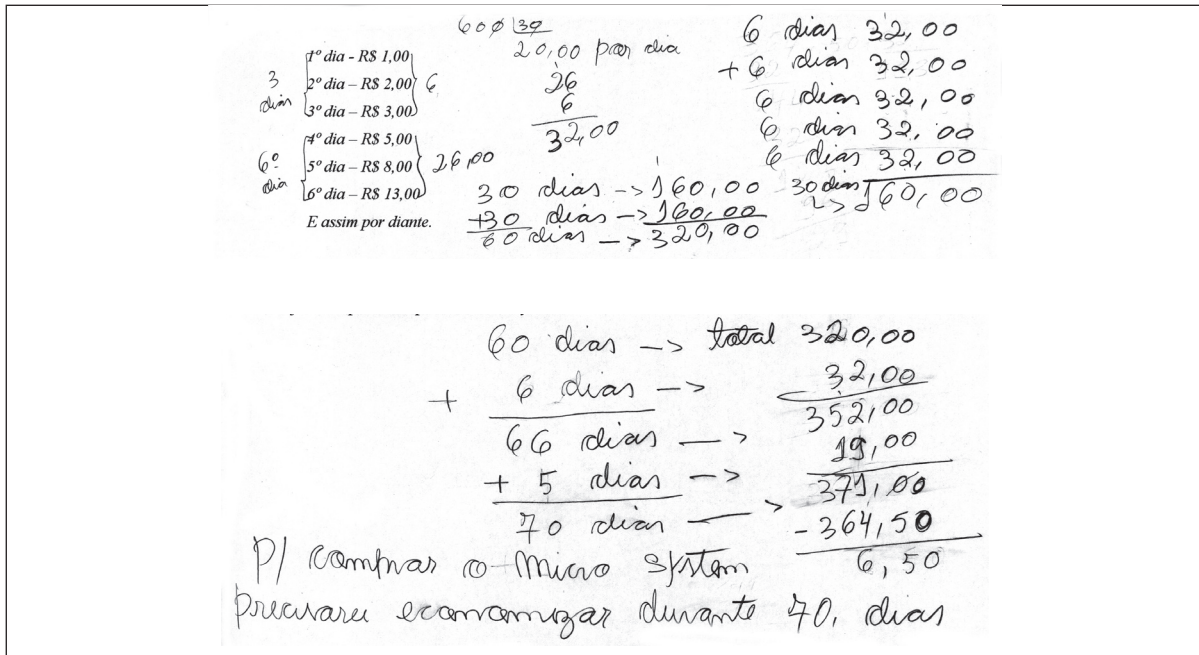 600 | 30
20,00 por dia
26
6
32,00
3 dias
1º dia - R$ 1,00
2º dia – R$ 2,00
3º dia – R$ 3,00
6
6º dia
4º dia – R$ 5,00
5º dia – R$ 8,00
6º dia – R$ 13,00
26,00
E assim por diante.
30 dias -> 160,00
+30 dias -> 160,00
60 dias -> 320,00
6 dias 32,00
+ 6 dias 32,00
6 dias 32,00
6 dias 32,00
6 dias 32,00
30 dias -> 160,00
60 dias -> total 320,00
+ 6 dias -> 32,00
352,00
66 dias -> 19,00
+ 5 dias -> 371,00
70 dias -> - 364,50
6,50
P/ comprar o Micro System
precisarei economizar durante 70, dias